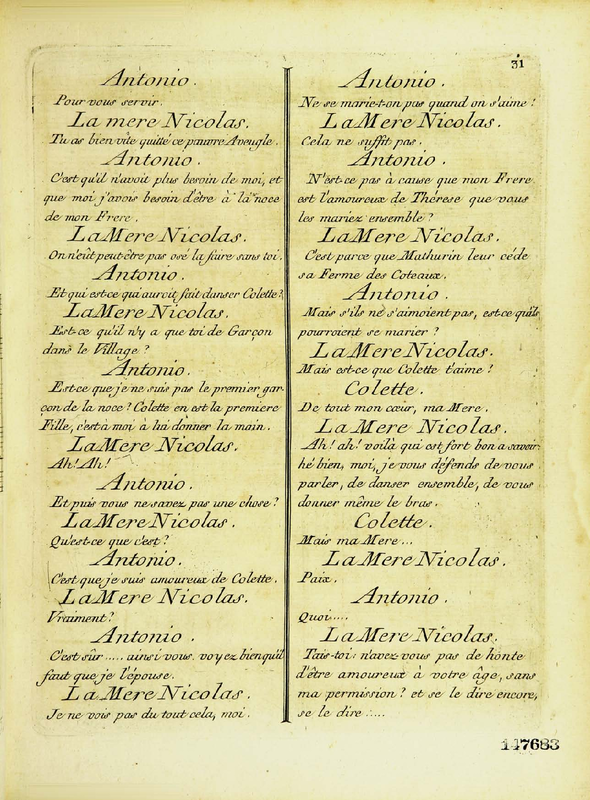 31
Antonio.
Pour vous servir.
La mere Nicolas.
Tu as bien vite quitté ce pauvre Aveugle.
Antonio.
C'est qu'il n'avoit plus besoin de moi, et
que moi j'avois besoin d'être à la noce
de mon Frere.
La Mere Nicolas.
On n'eût peut-être pas osé la faire sans toi.
Antonio.
Et qui est-ce qui auroit fait danser Colette?
La Mere Nicolas.
Est-ce qu'il n'y a que toi de Garçon
dans le Village?
Antonio.
Est-ce que je ne suis pas le premier gar-
çon de la noce? Colette en est la premiere
Fille, c'est à moi à lui donner la main.
La Mere Nicolas.
Ah! Ah!
Antonio.
Et puis vous ne savez pas une chose?
La Mere Nicolas.
Qu'est-ce que c'est?
Antonio.
C'est que je suis amoureux de Colette.
La Mere Nicolas.
Vraiment?
Antonio.
C'est sûr..... ainsi vous voyez bien qu'il
faut que je l'épouse.
La Mere Nicolas.
Je ne vois pas du tout cela, moi.
Antonio.
Ne se marie-t-on pas quand on s'aime!
La Mere Nicolas.
Cela ne suffit pas.
Antonio.
N'est-ce pas à cause que mon Frere
est l'amoureux de Therese que vous
les mariez ensemble?
La Mere Nicolas.
C'est parce que Mathurin leur céde
sa Ferme des Coteaux.
Antonio.
Mais s'ils ne s'aimoient pas, est-ce qu'ils
pourroient se marier?
La Mere Nicolas.
Mais est-ce que Colette t'aime!
Colette.
De tout mon cœur, ma Mere.
La Mere Nicolas.
Ah! ah! voilà qui est fort bon a savoir:
hé bien, moi, je vous défends de vous
parler, de danser ensemble, de vous
donner même le bras.
Colette.
Mais ma Mere...
La Mere Nicolas.
Paix.
Antonio.
Quoi....
La Mere Nicolas.
Tais-toi: n'avez-vous pas de honte
d'être amoureux à votre âge, sans
ma permission? et se le dire encore,
se le dire.....
147683